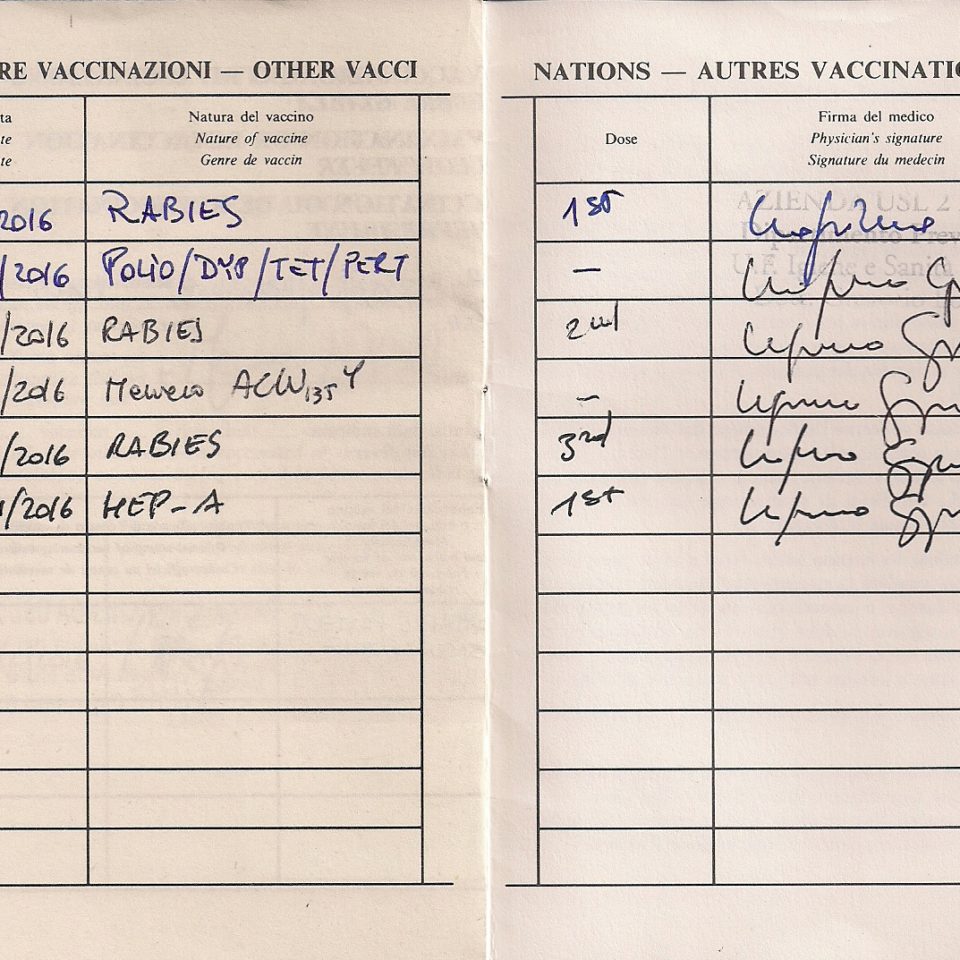 RE VACCINAZIONI — OTHER VACCI
NATIONS — AUTRES VACCINATIO
ta
te
te
Natura del vaccino
Nature of vaccine
Genre de vaccin
Dose
Firma del medico
Physician's signature
Signature du medecin
2016 RABIES 1st
/2016 POLIO/DYP/TET/PERT —
/2016 RABIES 2nd
/2016 ACW135Y –
/2016 RABIES 3rd
/2016 HEP-A 1st
AZIENDA USL 2
Dipartimento Prev
U.F. Igiene e Sanità